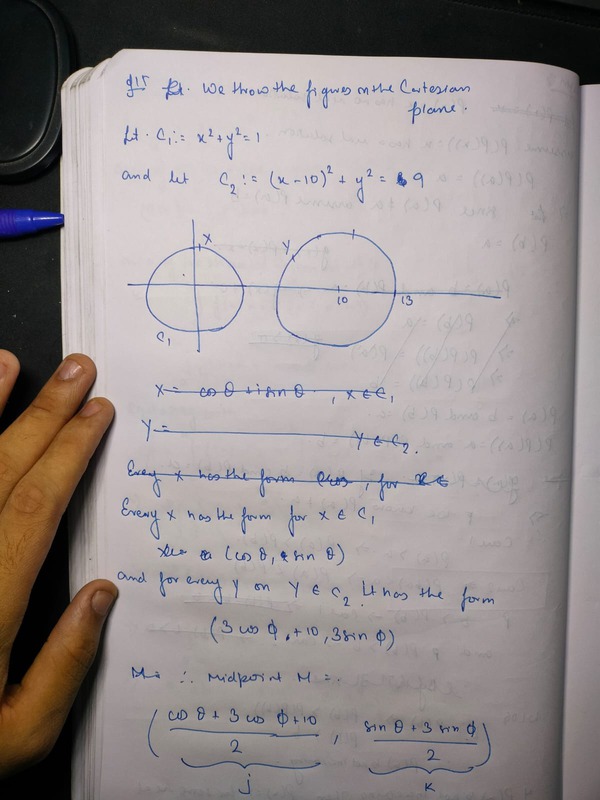 Q15 We throw the figures on the Cartesian
plane.
Let C₁ := x² + y² = 1
and let C₂ := (x-10)² + y² = 9
X
Y
10
13
C₁
X = cos θ + i sin θ , X ∈ C₁
Y = Y ∈ C₂.
Every X has the form cos , for X ∈
Every X has the form for X ∈ C₁
(cos θ, sin θ)
and for every Y on Y ∈ C₂. It has the form
(3 cos φ + 10, 3 sin φ)
∴ Midpoint M =
( (cos θ + 3 cos φ + 10)/2 , (sin θ + 3 sin φ)/2 )
j k